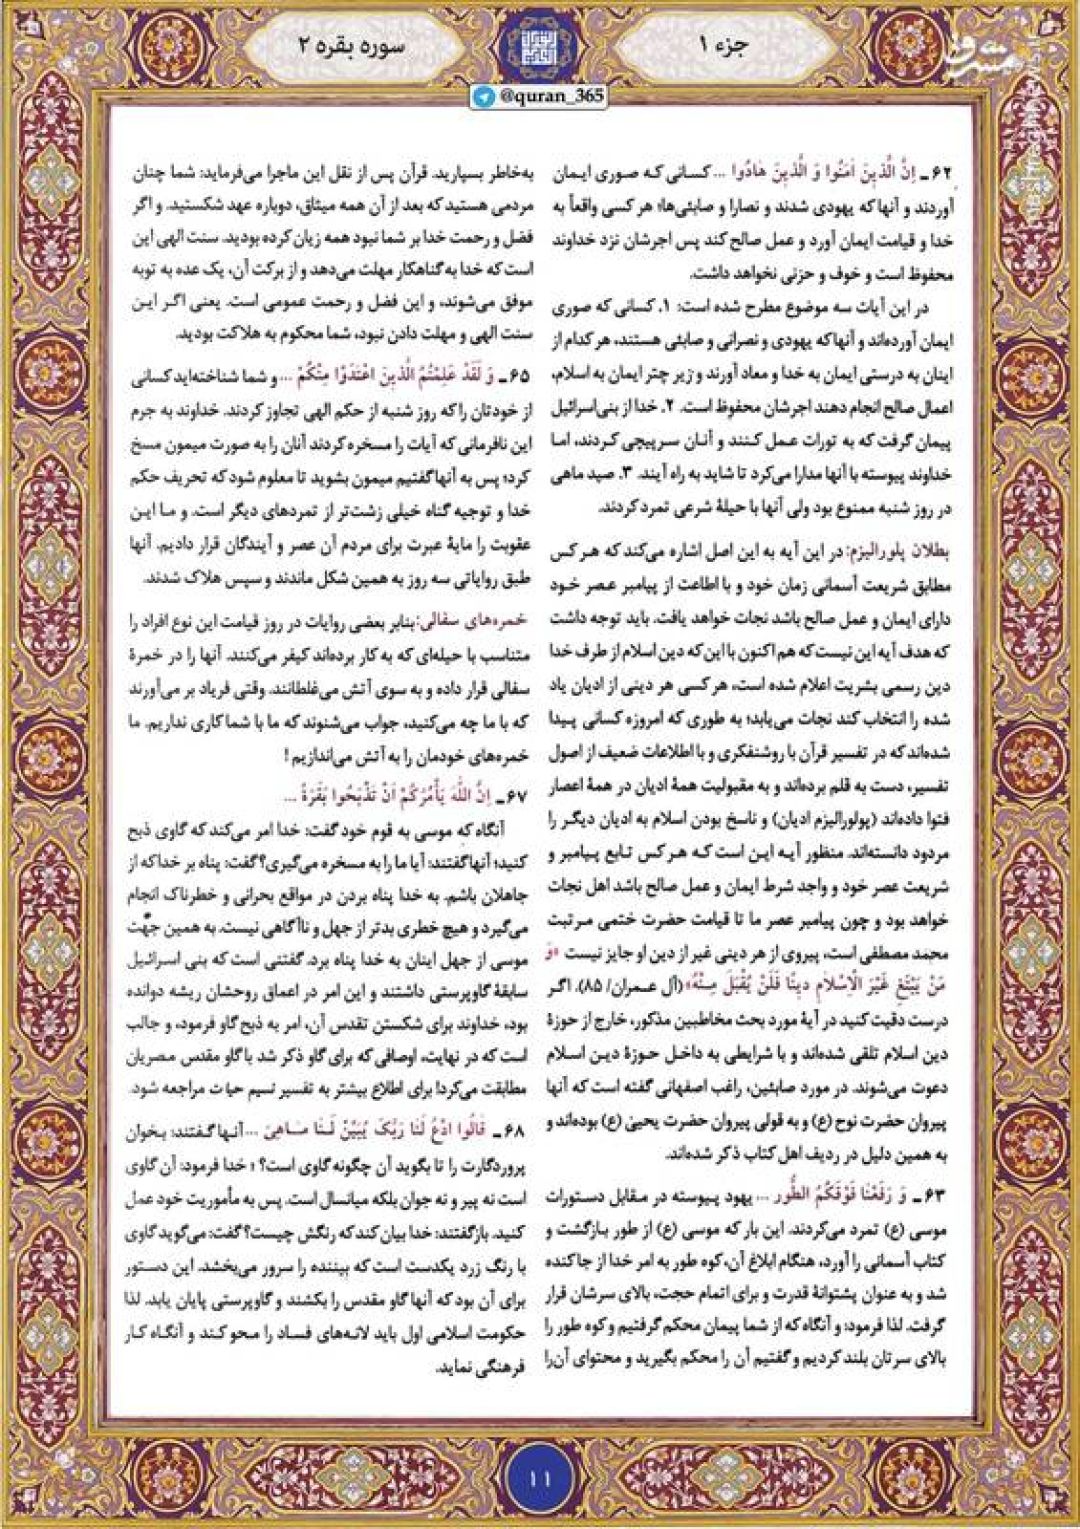 جزء ۱
سوره بقره ۲
@quran_365
مشرق
۶۲ـ اِنَّ الَّذینَ امَنُوا وَ الَّذینَ هَادُوا ... کسانی که صوری ایمان
آوردند و آنها که یهودی شدند و نصارا و صابئی‌ها؛ هر کسی واقعاً به
خدا و قیامت ایمان آورد و عمل صالح کند پس اجرشان نزد خداوند
محفوظ است و خوف و حزنی نخواهد داشت.
در این آیات سه موضوع مطرح شده است: ۱. کسانی که صوری
ایمان آورده‌اند و آنها که یهودی و نصرانی و صابئی هستند، هر کدام از
اینان به درستی ایمان به خدا و معاد آورند و زیر چتر ایمان به اسلام،
اعمال صالح انجام دهند اجرشان محفوظ است. ۲. خدا از بنی‌اسرائیل
پیمان گرفت که به تورات عمل کنند و آنان سرپیچی کردند، اما
خداوند پیوسته با آنها مدارا می‌کرد تا شاید به راه آیند. ۳. صید ماهی
در روز شنبه ممنوع بود ولی آنها با حیلهٔ شرعی تمرد کردند.
بطلان پلورالیزم: در این آیه به این اصل اشاره می‌کند که هر کس
مطابق شریعت آسمانی زمان خود و با اطاعت از پیامبر عصر خود
دارای ایمان و عمل صالح باشد نجات خواهد یافت. باید توجه داشت
که هدف آیه این نیست که هم اکنون با این‌که دین اسلام از طرف خدا
دین رسمی بشریت اعلام شده است، هر کسی هر دینی از ادیان یاد
شده را انتخاب کند نجات می‌یابد؛ به طوری که امروزه کسانی پیدا
شده‌اند که در تفسیر قرآن با روشنفکری و با اطلاعات ضعیف از اصول
تفسیر، دست به قلم برده‌اند و به مقبولیت همهٔ ادیان در همهٔ اعصار
فتوا داده‌اند (پولورالیزم ادیان) و ناسخ بودن اسلام به ادیان دیگر را
مردود دانسته‌اند. منظور آیه این است که هر کس تابع پیامبر و
شریعت عصر خود و واجد شرط ایمان و عمل صالح باشد اهل نجات
خواهد بود و چون پیامبر عصر ما تا قیامت حضرت ختمی مرتبت
محمد مصطفی است، پیروی از هر دینی غیر از دین او جایز نیست «وَ
مَنْ یَبْتَغِ غَیْرَ الْاِسْلَامِ دینًا فَلَنْ یُقْبَلَ مِنْهُ» (آل عمران/ ۸۵). اگر
درست دقیت کنید در آیهٔ مورد بحث مخاطبین مذکور، خارج از حوزهٔ
دین اسلام تلقی شده‌اند و با شرایطی به داخل حوزهٔ دین اسلام
دعوت می‌شوند. در مورد صابئین، راغب اصفهانی گفته است که آنها
پیروان حضرت نوح (ع) و به قولی پیروان حضرت یحیی (ع) بوده‌اند و
به همین دلیل در ردیف اهل کتاب ذکر شده‌اند.
۶۳ـ وَ رَفَعْنَا فَوْقَکُمُ الطُّور ... یهود پیوسته در مقابل دستورات
موسی (ع) تمرد می‌کردند. این بار که موسی (ع) از طور بازگشت و
کتاب آسمانی را آورد، هنگام ابلاغ آن، کوه طور به امر خدا از جا کنده
شد و به عنوان پشتوانهٔ قدرت و برای اتمام حجت، بالای سرشان قرار
گرفت. لذا فرمود: و آنگاه که از شما پیمان محکم گرفتیم و کوه طور را
بالای سرتان بلند کردیم و گفتیم آن را محکم بگیرید و محتوای آن‌را
به‌خاطر بسپارید. قرآن پس از نقل این ماجرا می‌فرماید: شما چنان
مردمی هستید که بعد از آن همه میثاق، دوباره عهد شکستید. و اگر
فضل و رحمت خدا بر شما نبود همه زیان کرده بودید. سنت الهی این
است که خدا به گناهکار مهلت می‌دهد و از برکت آن، یک عده به توبه
موفق می‌شوند، و این فضل و رحمت عمومی است. یعنی اگر این
سنت الهی و مهلت دادن نبود، شما محکوم به هلاکت بودید.
۶۵ـ وَ لَقَدْ عَلِمْتُمُ الَّذینَ اعْتَدَوْا مِنْکُمْ ... و شما شناخته‌اید کسانی
از خودتان را که روز شنبه از حکم الهی تجاوز کردند. خداوند به جرم
این نافرمانی که آیات را مسخره کردند آنان را به صورت میمون مسخ
کرد؛ پس به آنها گفتیم میمون بشوید تا معلوم شود که تحریف حکم
خدا و توجیه گناه خیلی زشت‌تر از تمردهای دیگر است. و ما این
عقوبت را مایهٔ عبرت برای مردم آن عصر و آیندگان قرار دادیم. آنها
طبق روایاتی سه روز به همین شکل ماندند و سپس هلاک شدند.
خمره‌های سفالی: بنابر بعضی روایات در روز قیامت این نوع افراد را
متناسب با حیله‌ای که به کار برده‌اند کیفر می‌کنند. آنها را در خمرهٔ
سفالی قرار داده و به سوی آتش می‌غلطانند. وقتی فریاد بر می‌آورند
که با ما چه می‌کنید، جواب می‌شنوند که ما با شما کاری نداریم. ما
خمره‌های خودمان را به آتش می‌اندازیم!
۶۷ـ اِنَّ اللّٰهَ یَأْمُرُکُمْ اَنْ تَذْبَحُوا بَقَرَةً ...
آنگاه که موسی به قوم خود گفت: خدا امر می‌کند که گاوی ذبح
کنید؛ آنها گفتند: آیا ما را به مسخره می‌گیری؟ گفت: پناه بر خدا که از
جاهلان باشم. به خدا پناه بردن در مواقع بحرانی و خطرناک انجام
می‌گیرد و هیچ خطری بدتر از جهل و ناآگاهی نیست. به همین جهت
موسی از جهل اینان به خدا پناه برد. گفتنی است که بنی اسرائیل
سابقهٔ گاوپرستی داشتند و این امر در اعماق روحشان ریشه دوانده
بود، خداوند برای شکستن تقدس آن، امر به ذبح گاو فرمود، و جالب
است که در نهایت، اوصافی که برای گاو ذکر شد با گاو مقدس مصریان
مطابقت می‌کرد! برای اطلاع بیشتر به تفسیر نسیم حیات مراجعه شود.
۶۸ـ قَالُوا ادْعُ لَنَا رَبَّکَ یُبَیِّنْ لَنَا مَاهِیَ ... آنها گفتند: بخوان
پروردگارت را تا بگوید آن چگونه گاوی است؟ خدا فرمود: آن گاوی
است نه پیر و نه جوان بلکه میانسال است. پس به مأموریت خود عمل
کنید. باز گفتند: خدا بیان کند که رنگش چیست؟ گفت: می‌گوید گاوی
با رنگ زرد یکدست است که بیننده را سرور می‌بخشد. این دستور
برای آن بود که آنها گاو مقدس را بکشند و گاوپرستی پایان یابد. لذا
حکومت اسلامی اول باید لانه‌های فساد را محو کند و آنگاه کار
فرهنگی نماید.
۱۱